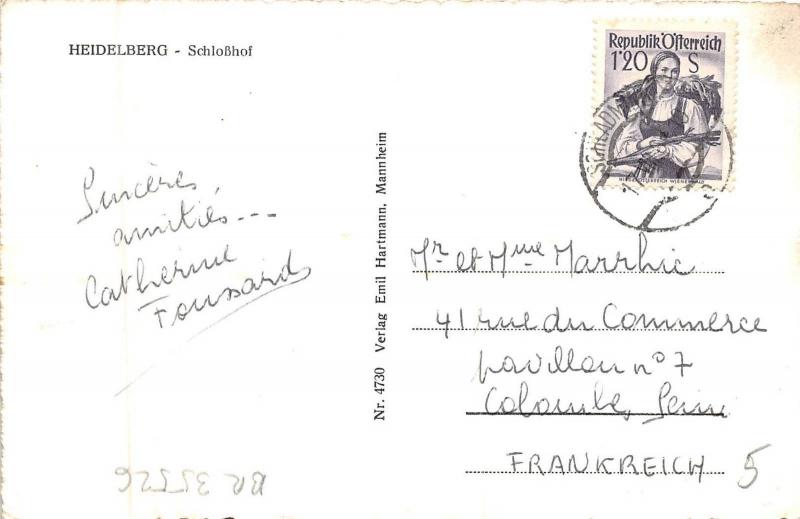 HEIDELBERG - Schloßhof
Republik Österreich
1'20 S
NIEDERÖSTERREICH WIENERWALD
SCHLADM
Sincères
amitiés...
Catherine
Foussard
Nr. 4730 Verlag Emil Hartmann, Mannheim
Mr et Mme Marrhic
41 rue du Commerce
pavillon n° 7
Colombe, Seine
FRANKREICH
5
BR 35526